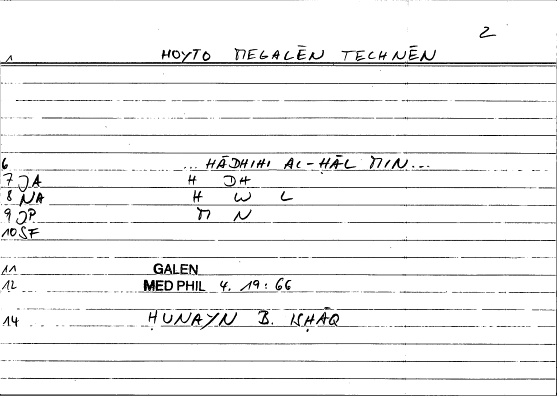 2
1 HOYTO MEGALĒN TECHNĒN
6 ... HĀDHIHI AL-ḤĀL MIN...
7 JA H DH
8 NA Ḥ W L
9 JP M N
10 SF
11 GALEN
12 MED PHIL 4. 19:66
14 ḤUNAYN B. ISḤĀQ